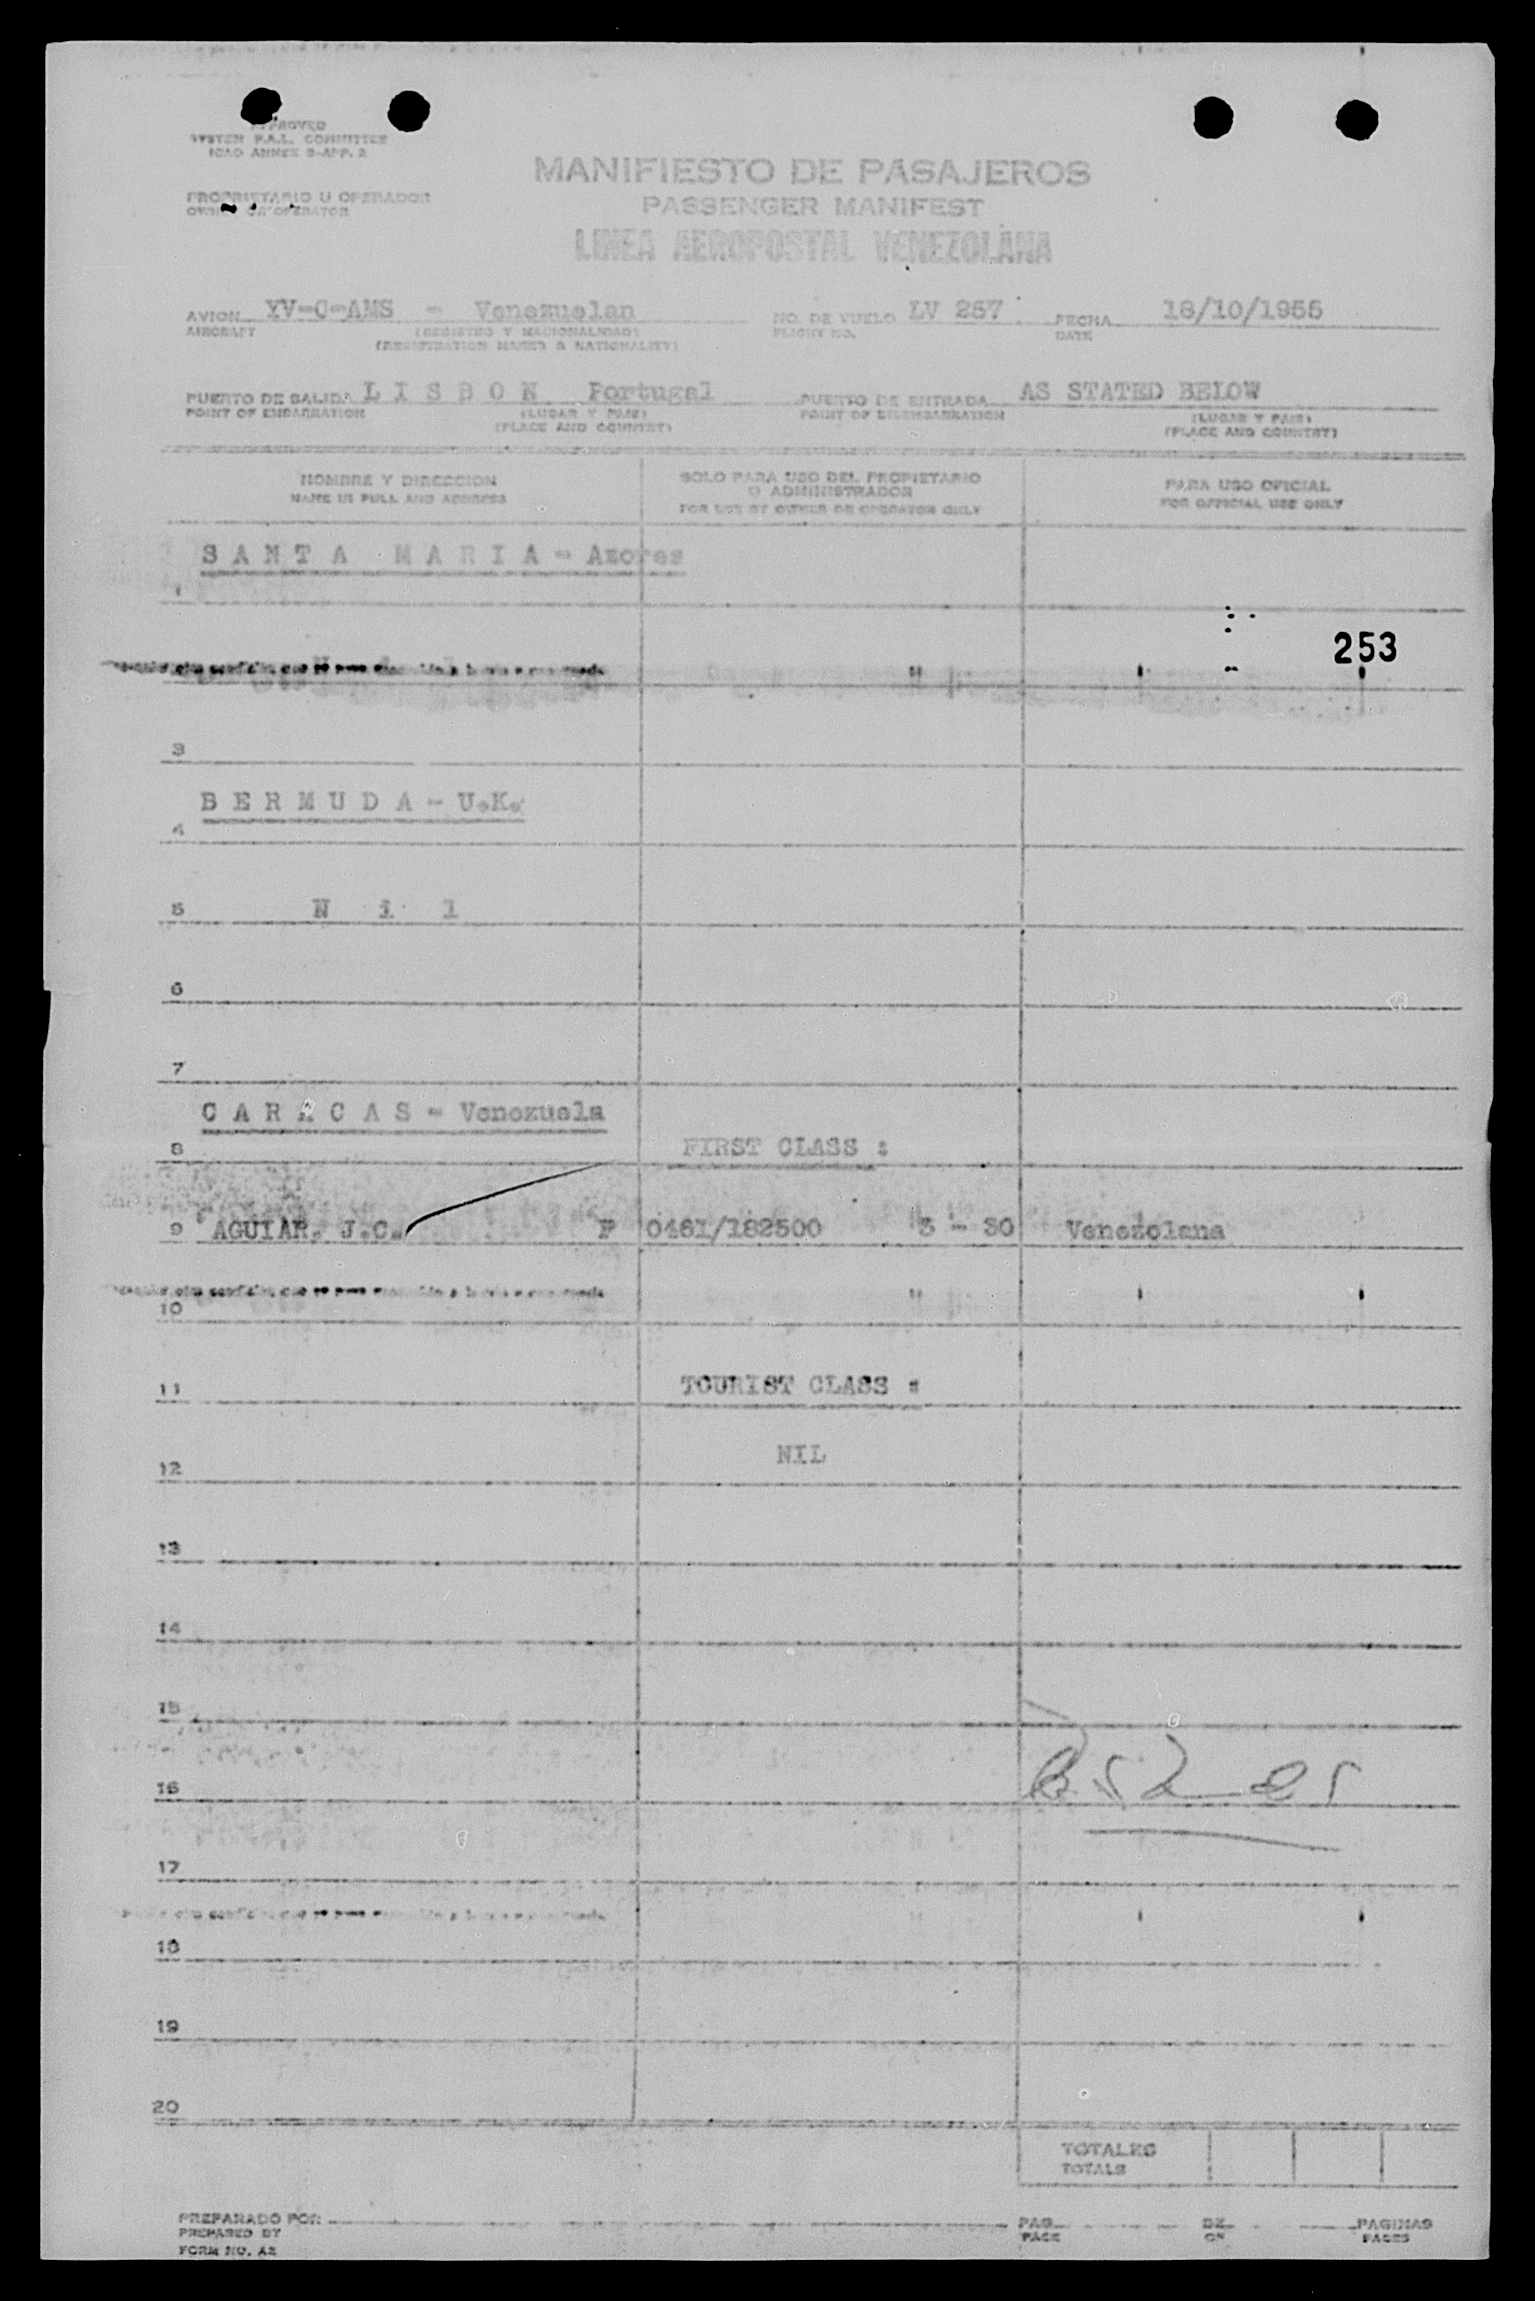 APPROVED
SYSTEM F.A.L. COMMITTEE
ICAO ANNEX 9-APP. 2
MANIFIESTO DE PASAJEROS
PROPRIETARIO U OPERADOR
OWNER OR OPERATOR
PASSENGER MANIFEST
LINEA AEROPOSTAL VENEZOLANA
AVION YV-C-AMS - Venezuelan NO. DE VUELO LV 257 FECHA 18/10/1955
AIRCRAFT (REGISTRO Y NACIONALIDAD) FLIGHT NO. DATE
(REGISTRATION MARKS & NATIONALITY)
PUERTO DE SALIDA L I S B O N Portugal PUERTO DE ENTRADA AS STATED BELOW
POINT OF EMBARKATION (LUGAR Y PAIS) POINT OF DISEMBARKATION (LUGAR Y PAIS)
(PLACE AND COUNTRY) (PLACE AND COUNTRY)
NOMBRE Y DIRECCION SOLO PARA USO DEL PROPIETARIO PARA USO OFICIAL
O ADMINISTRADOR
NAME IN FULL AND ADDRESS FOR USE BY OWNER OR OPERATOR ONLY FOR OFFICIAL USE ONLY
S A N T A M A R I A - Azores
1
253
3
B E R M U D A - U.K.
4
5 N i l
6
7
C A R A C A S - Venezuela
8 FIRST CLASS :
9 AGUIAR, J.C. P 0461/182500 3 - 30 Venezolana
10
11 TOURIST CLASS :
12 NIL
13
14
15
16
17
18
19
20
TOTALES
TOTALS
PREPARADO POR PAG. DE PAGINAS
PREPARED BY PAGE OF PAGES
FORM NO. A2